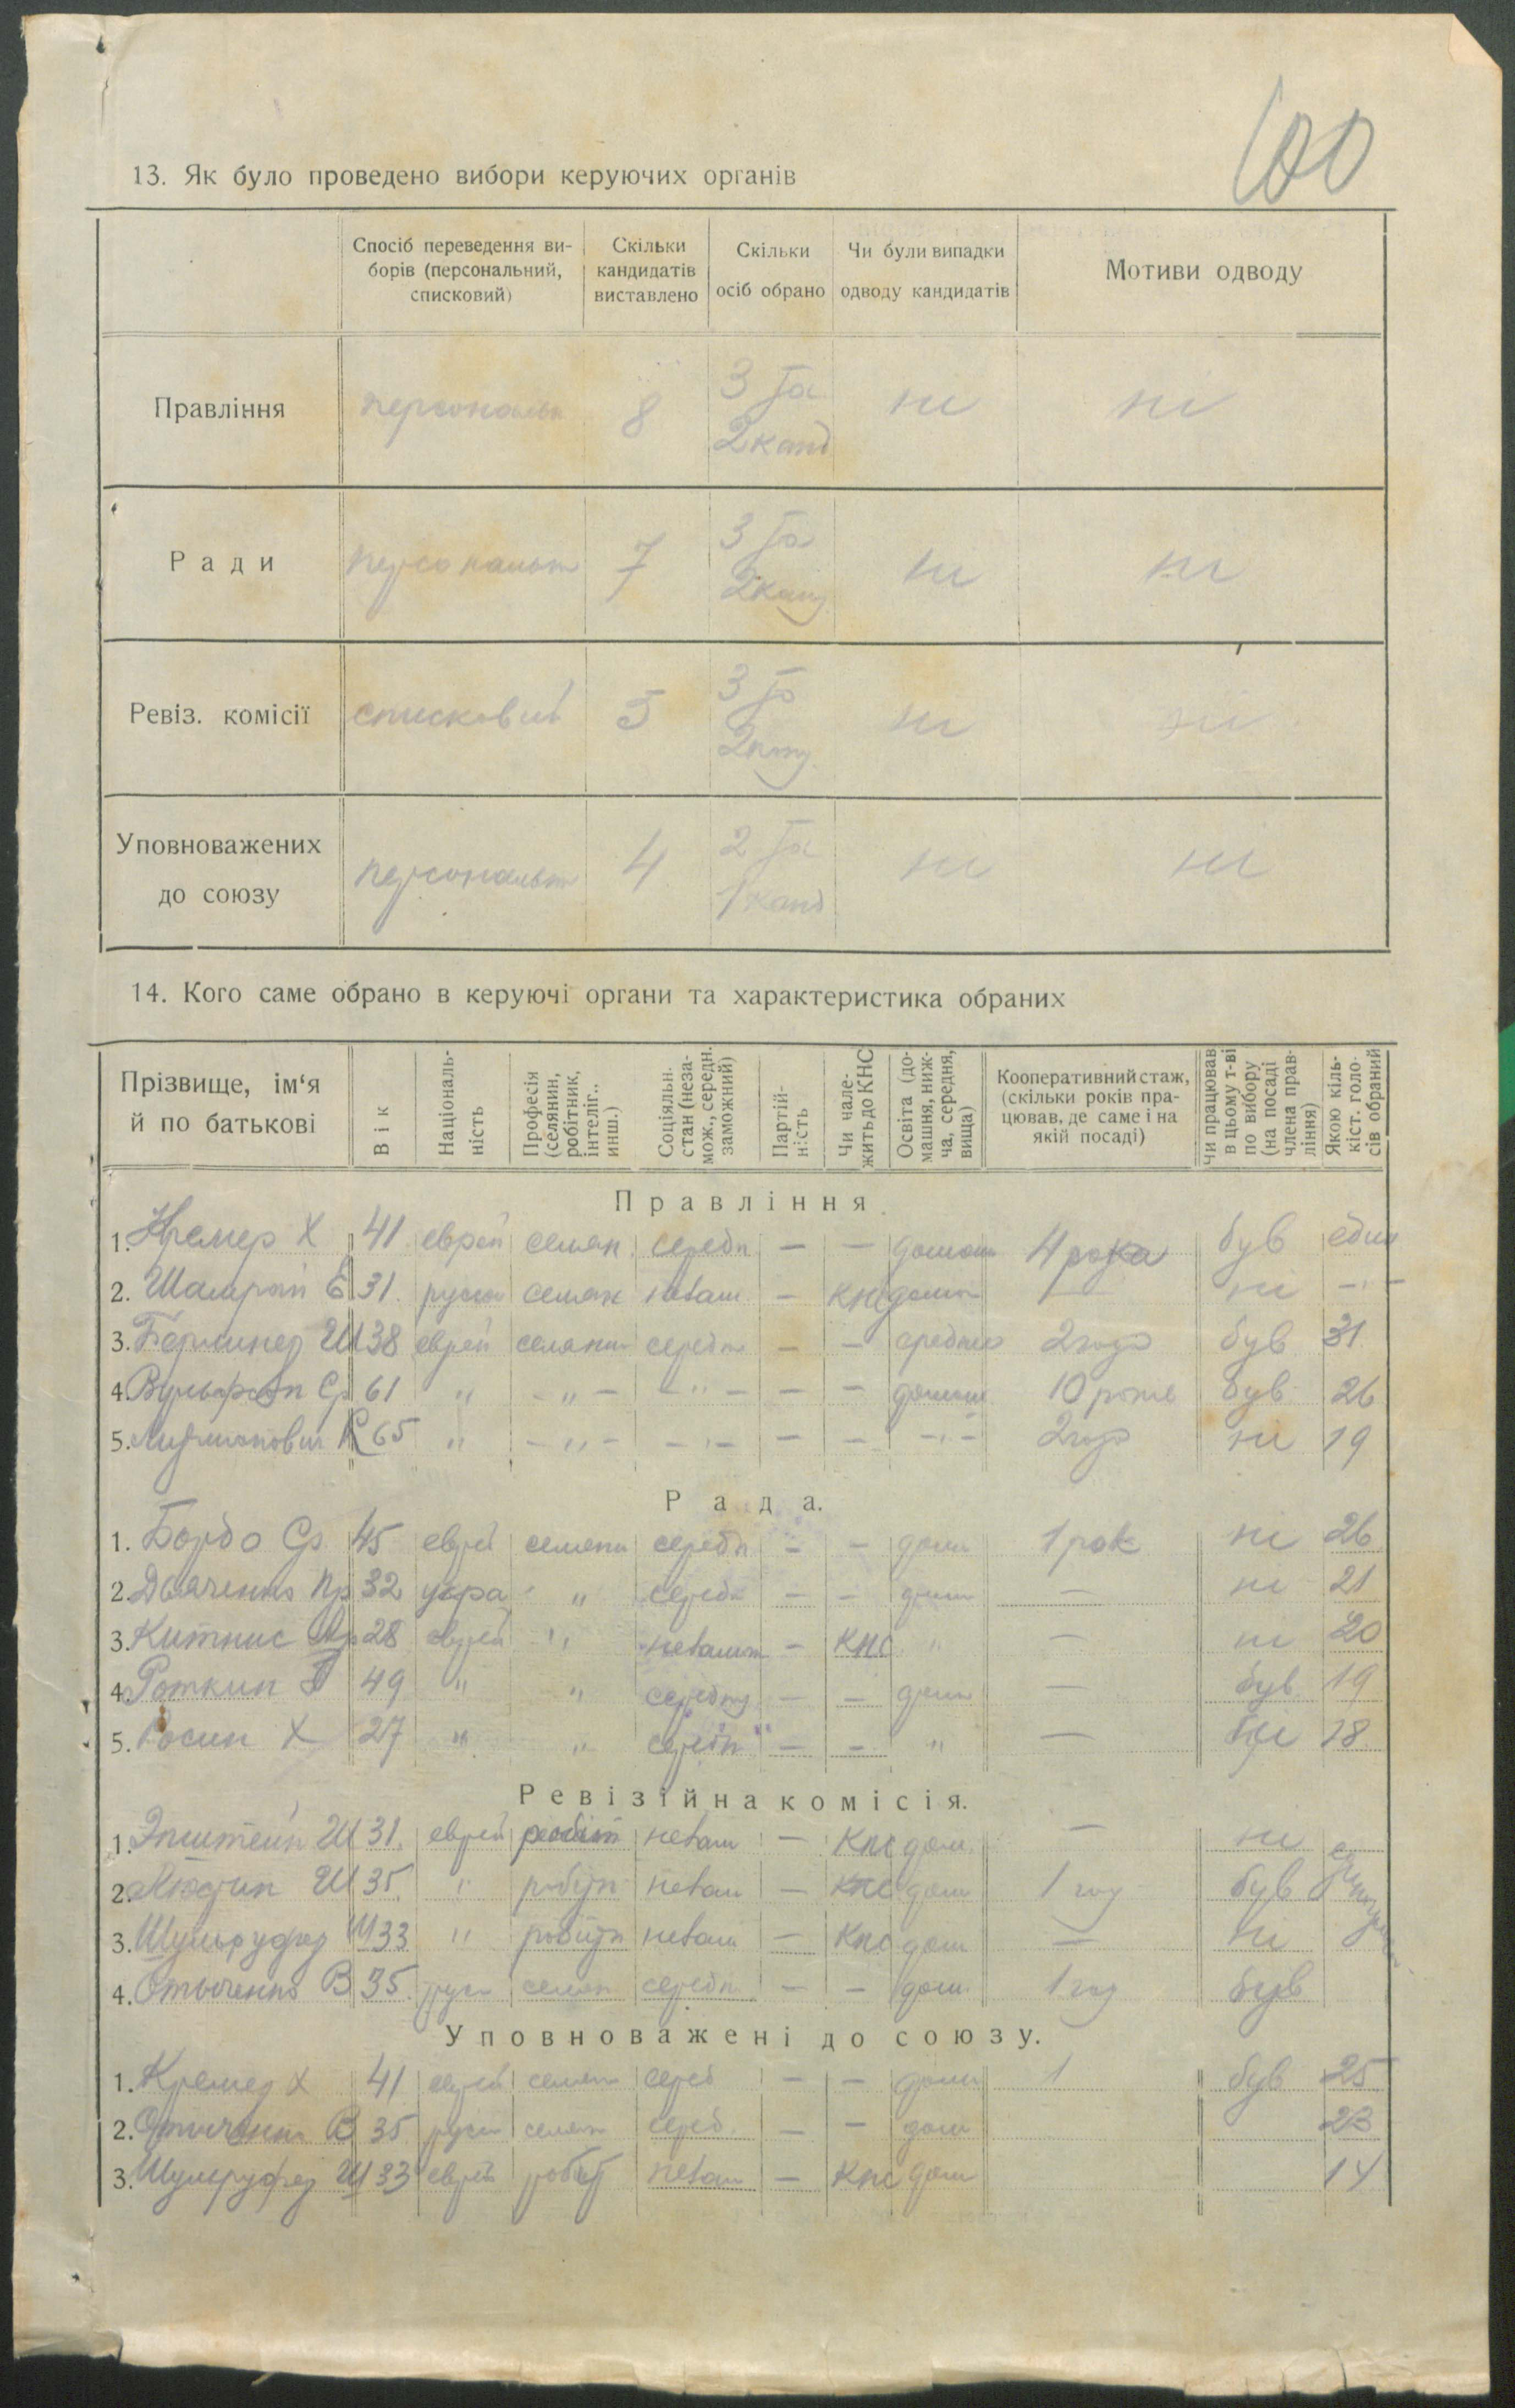 100
13. Як було проведено вибори керуючих органів
Спосіб переведення ви-
борів (персональний,
списковий)
Скільки
кандидатів
виставлено
Скільки
осіб обрано
Чи були випадки
одводу кандидатів
Мотиви одводу
Правління персональн 8 3 та 2 канд ні ні
Ради персональн 7 3 та 2 канд ні ні
Ревіз. комісії списковий 5 3 та ні ні
Уповноважених
до союзу персональн 4 2 та 1 канд ні ні
14. Кого саме обрано в керуючі органи та характеристика обраних
Прізвище, ім‘я
й по батькові
Вік
Національ-
ність
Професія
(селянин,
робітник,
інтеліг..,
инш.)
Соціяльн.
стан (неза-
мож., середн.
заможний)
Партій-
ність
Чи нале-
жить до КНС
Освіта (до-
машня, ниж-
ча, середня,
вища)
Кооперативний стаж,
(скільки років пра-
цював, де саме і на
якій посаді)
Чи працював
в цьому т-ві
по вибору
(на посаді
члена прав-
ління)
Якою кіль-
кіст. голо-
сів обраний
Правління
1. Кремер Х 41 еврей селян середн — — 4 рока був
2. Е 31 селян незам — КНС — ні —„—
3. Ш 38 еврей селянин середн — — 2 года був 31
4. Ср 61 „ —„— —„— — — 10 був 26
5. 65 „ —„— —„— — — —„— 2 года ні 19
Рада.
1. Ср 45 еврей селянин середн — — дом 1 рок ні 26
2. Дьяченко Пр 32 укра „ середн — — дом — ні 21
3. Китнис 28 еврей „ незамож — КНС „ — ні 20
4. Роткин 49 „ „ середн — — дом — був 19
5. Росин Х 27 „ „ середн — — „ — 18
Ревізійна комісія.
1. Эпштейн Ш 31. еврей робіт незам — КНС дом. — ні
2. Ш 35. „ робітн незам — КНС дом 1 год був
3. Ш 33 „ робітн незам — КНС дом — ні
4. В 35. руск селян середн — — дом. 1 год був
Уповноважені до союзу.
1. Кремер Х 41 еврей селян серед — — дом 1 був 25
2. В 35. руск селян серед. — — дом 23
3. Ш 33 еврей робіт незам — КНС дом 14